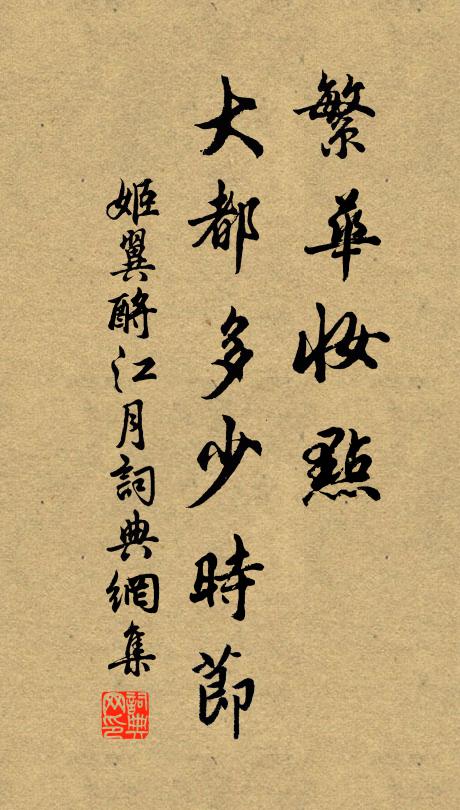 繁華妝點
大都多少時節
姬翼酹江月詞典網集
詞典
网印